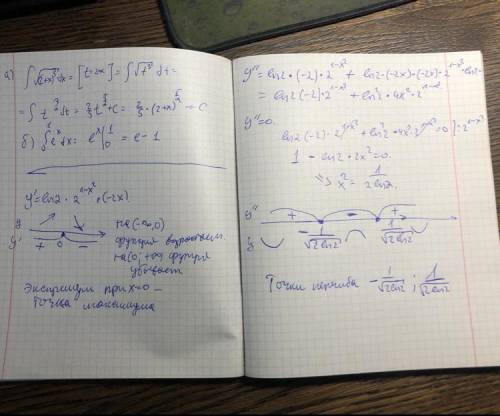 а) ∫√(2+x)³ dx = [t=2+x] = ∫√t³ dt =
= ∫ t^{3/2} dt = 2/5 t^{5/2} + C = 2/5 · (2+x)^{5/2} + C
б) ∫₀¹ eˣ dx = eˣ|₀¹ = e - 1
y' = ln2 · 2^{1-x²} · (-2x)
y
y' + 0 -
на (-∞, 0)
функция возрастает
на (0, +∞) функция
убывает
Экстремум при x=0 –
точка максимума
y'' = ln2 · (-2) · 2^{1-x²} + ln2 · (-2x) · (-2x) · 2^{1-x²} · ln2 =
= ln2 (-2) · 2^{1-x²} + ln²2 · 4x² · 2^{1-x²}
y''=0.
ln2(-2) · 2^{1-x²} + ln²2 · 4x² · 2^{1-x²} = 0 | : 2^{1-x²}
1 - ln2 · 2x² = 0.
=> x² = 1/(2ln2)
y'' + - +
y -1/√(2ln2) 1/√(2ln2)
Точки перегиба -1/√(2ln2) ; 1/√(2ln2)